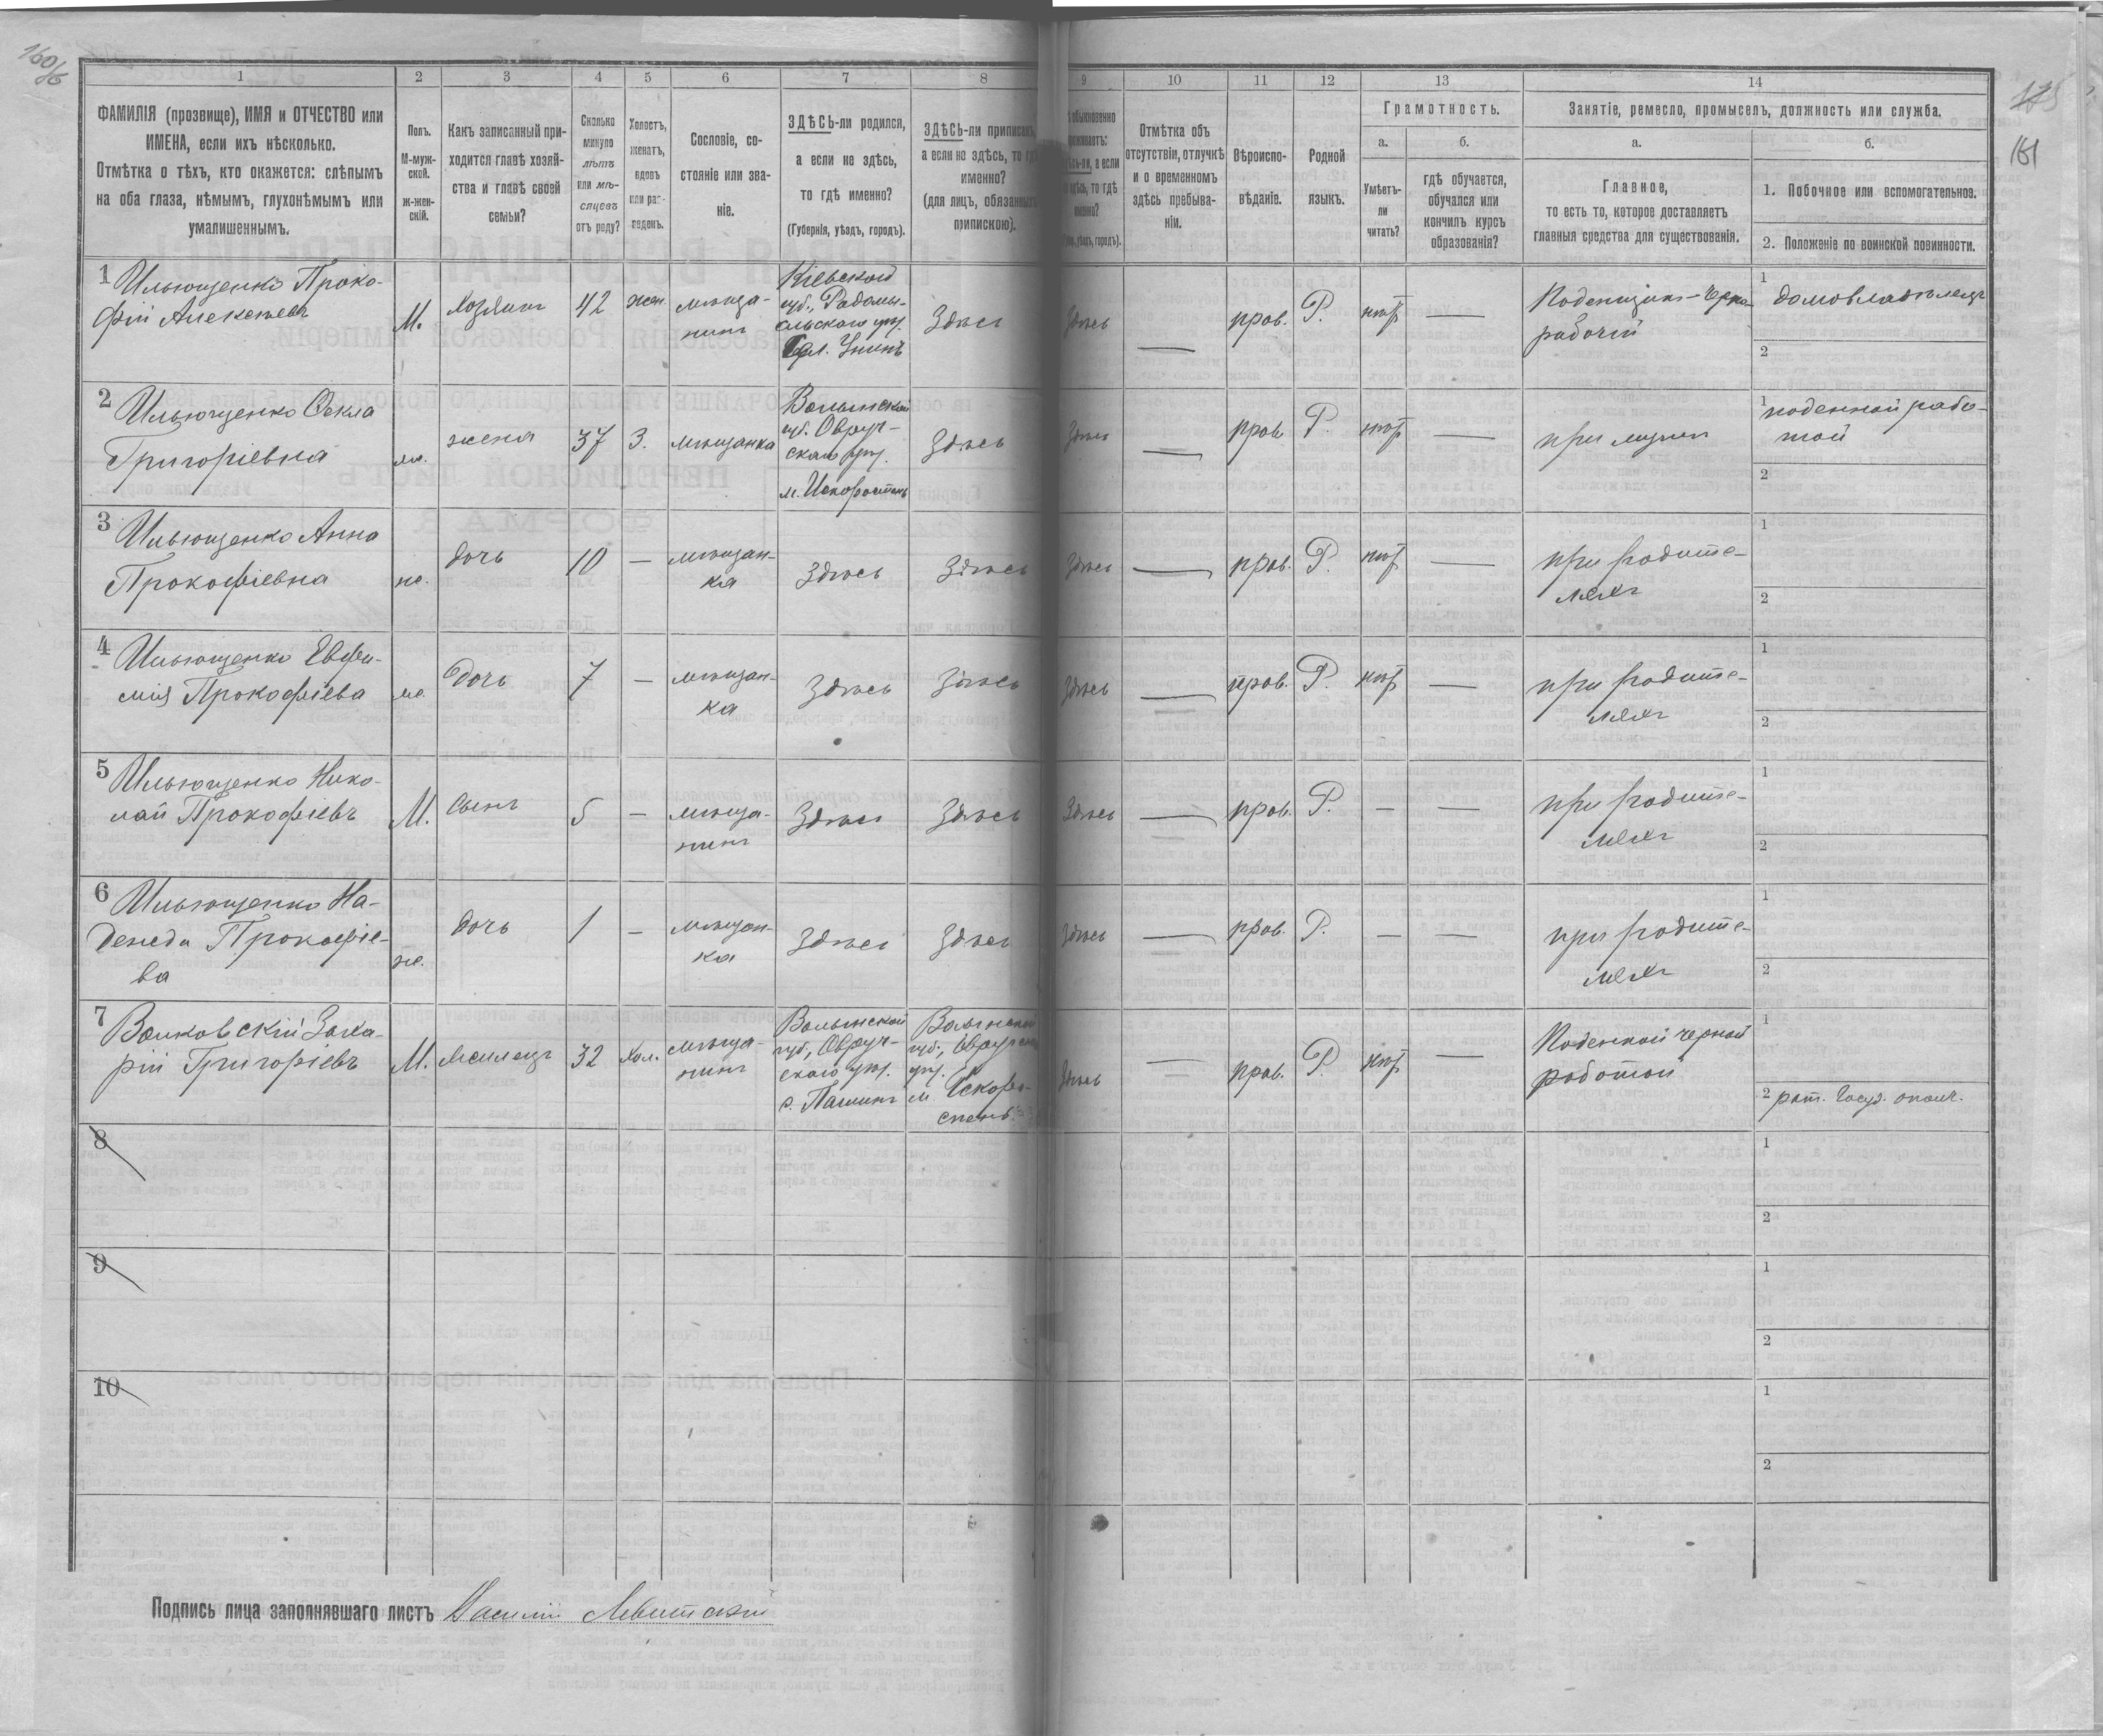 160/б
1 2 3 4 5 6 7 8 9 10 11 12 13 14
161
ФАМИЛІЯ (прозвище), ИМЯ и ОТЧЕСТВО или
ИМЕНА, если ихъ нѣсколько.
Отмѣтка о тѣхъ, кто окажется: слѣпымъ
на оба глаза, нѣмымъ, глухонѣмымъ или
умалишеннымъ.
Полъ.
М-муж-
ской.
ж-жен-
скій.
Какъ записанный при-
ходится главѣ хозяй-
ства и главѣ своей
семьи?
Сколько
минуло
лѣтъ
или мѣ-
сяцевъ
отъ роду?
Холостъ,
женатъ,
вдовъ
или раз-
веденъ.
Сословіе, со-
стояніе или зва-
ніе.
ЗДѢСЬ-ли родился,
а если не здѣсь,
то гдѣ именно?
(Губернія, уѣздъ, городъ).
ЗДѢСЬ-ли приписанъ,
а если не здѣсь, то гдѣ
именно?
(для лицъ, обязанныхъ
припискою).
обыкновенно
а если
то гдѣ
именно?
уѣздъ, городъ).
Отмѣтка объ
отсутствіи, отлучкѣ
и о временномъ
здѣсь пребыва-
ніи.
Вѣроиспо-
вѣданіе.
Родной
языкъ.
Грамотность.
а.
Умѣетъ-
ли
читать?
б.
гдѣ обучается,
обучался или
кончилъ курсъ
образованія?
Занятіе, ремесло, промыселъ, должность или служба.
а.
Главное,
то есть то, которое доставляетъ
главныя средства для существованія.
б.
1. Побочное или вспомогательное.
2. Положеніе по воинской повинности.
1 Ильющенко Проко-
фій Алексѣевъ
М.
Хозяинъ
42
жен.
мѣща-
нинъ
Кіевской
губ., Радомы-
сльскаго уѣз.
Здѣсь
Здѣсь
—
прав.
Р.
нѣт
—
Поденщикъ-черно
рабочій
1 домовладѣлецъ
2
2 Ильющенко Ѳекла
Григоріевна
ж.
жена
37
З.
мѣщанка
Волынской
губ. Овруч-
скаго уѣз.
м. Искоростень
Здѣсь
Здѣсь
—
прав.
Р.
нѣт
—
при мужѣ
1 поденной рабо-
той
2
3 Ильющенко Анна
Прокофіевна
ж.
дочь
10
—
мѣщан-
ка
Здѣсь
Здѣсь
Здѣсь
—
прав.
Р.
нѣт
—
при родите-
ляхъ
1
2
4 Ильющенко Евфи-
мія Прокофіева
ж.
Дочь
7
—
мѣщан-
ка
Здѣсь
Здѣсь
Здѣсь
—
прав.
Р.
нѣт
—
при родите-
ляхъ
1
2
5 Ильющенко Нико-
лай Прокофіевъ
М.
Сынъ
5
—
мѣща-
нинъ
Здѣсь
Здѣсь
Здѣсь
—
прав.
Р.
—
—
при родите-
ляхъ
1
2
6 Ильющенко На-
дежда Прокофіе-
ва
ж.
дочь
1
—
мѣщан-
ка
Здѣсь
Здѣсь
Здѣсь
—
прав.
Р.
—
—
при родите-
ляхъ
1
2
7 Волковскій Заха-
рій Григоріевъ
М.
жилецъ
32
Хол.
мѣща-
нинъ
Волынской
губ., Овруч-
скаго уѣз.
с. Пашинъ
Волынской
губ., Овруч
уѣз.
м Искоро-
стень
Здѣсь
—
прав.
Р.
нѣт
—
Поденной черной
работой
1
2 рат. Госуд. ополч.
8
1
2
9
1
2
10
1
2
Подпись лица заполнявшаго листъ Василій Левитскій